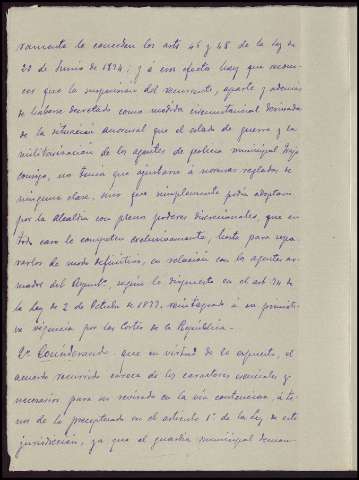 samente le conceden los arts 46 y 48 de la ley de
22 de Junio de 1894; y á ese efecto hay que recono-
cer que la suspension del recurrente, aparte y además
de haberse decretado como medida circunstancial derivada
de la situacion anormal que el estado de guerra y la
militarizacion de los agentes de policia municipal trajo
consigo, no tenia que ajustarse á normas regladas de
ninguna clase, sino que simplemente podia adoptarse
por la Alcaldia con plenos poderes discrecionales, que en
todo caso le competen exclusivamente, hasta para sepa-
rarlos de modo definitivo, en relacion con los agentes ar-
mados del Ayunto, segun lo dispuesto en el art 74 de
la Ley de 2 de Octubre de 1877, reintegrada á su primiti-
va vigencia por las Cortes de la República.-
2º Considerando: que en virtud de lo expuesto, el
acuerdo recurrido carece de los caracteres esenciales y
necesarios para ser revisado en la via contenciosa, á te-
nor de lo preceptuado en el articulo 1º de la Ley de esta
jurisdiccion, ya que al guardia municipal deman-